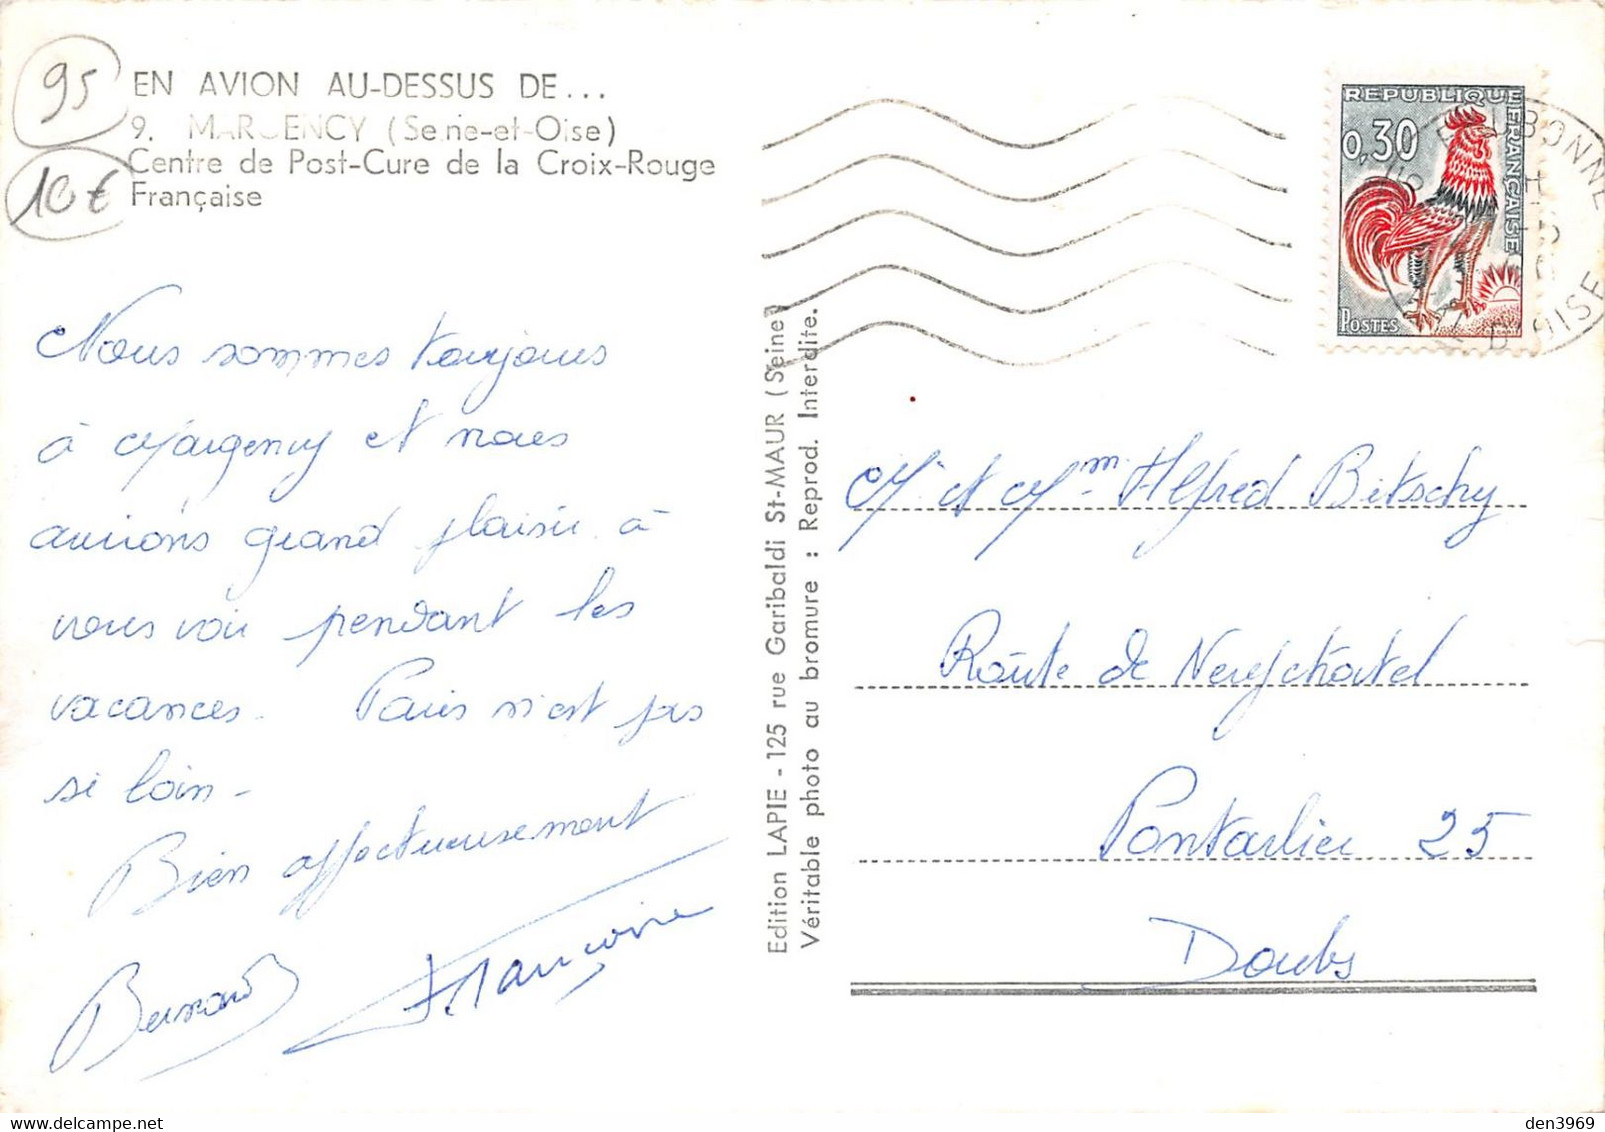 95
10€
EN AVION AU-DESSUS DE...
9. MARGENCY (Seine-et-Oise)
Centre de Post-Cure de la Croix-Rouge
Française
Nous sommes toujours
à Margency et nous
aurions grand plaisir à
vous voir pendant les
vacances. Paris n'est pas
si loin -
Bien affectueusement
Bernard
Françoise
Edition LAPIE - 125 rue Garibaldi St-MAUR (Seine)
Véritable photo au bromure : Reprod. Interdite.
REPUBLIQUE FRANÇAISE
0,30
POSTES
BONNE
OISE
Mr et Mme Alfred Bitschy
Route de Neufchâtel
Pontarlier 25
Doubs
den3969